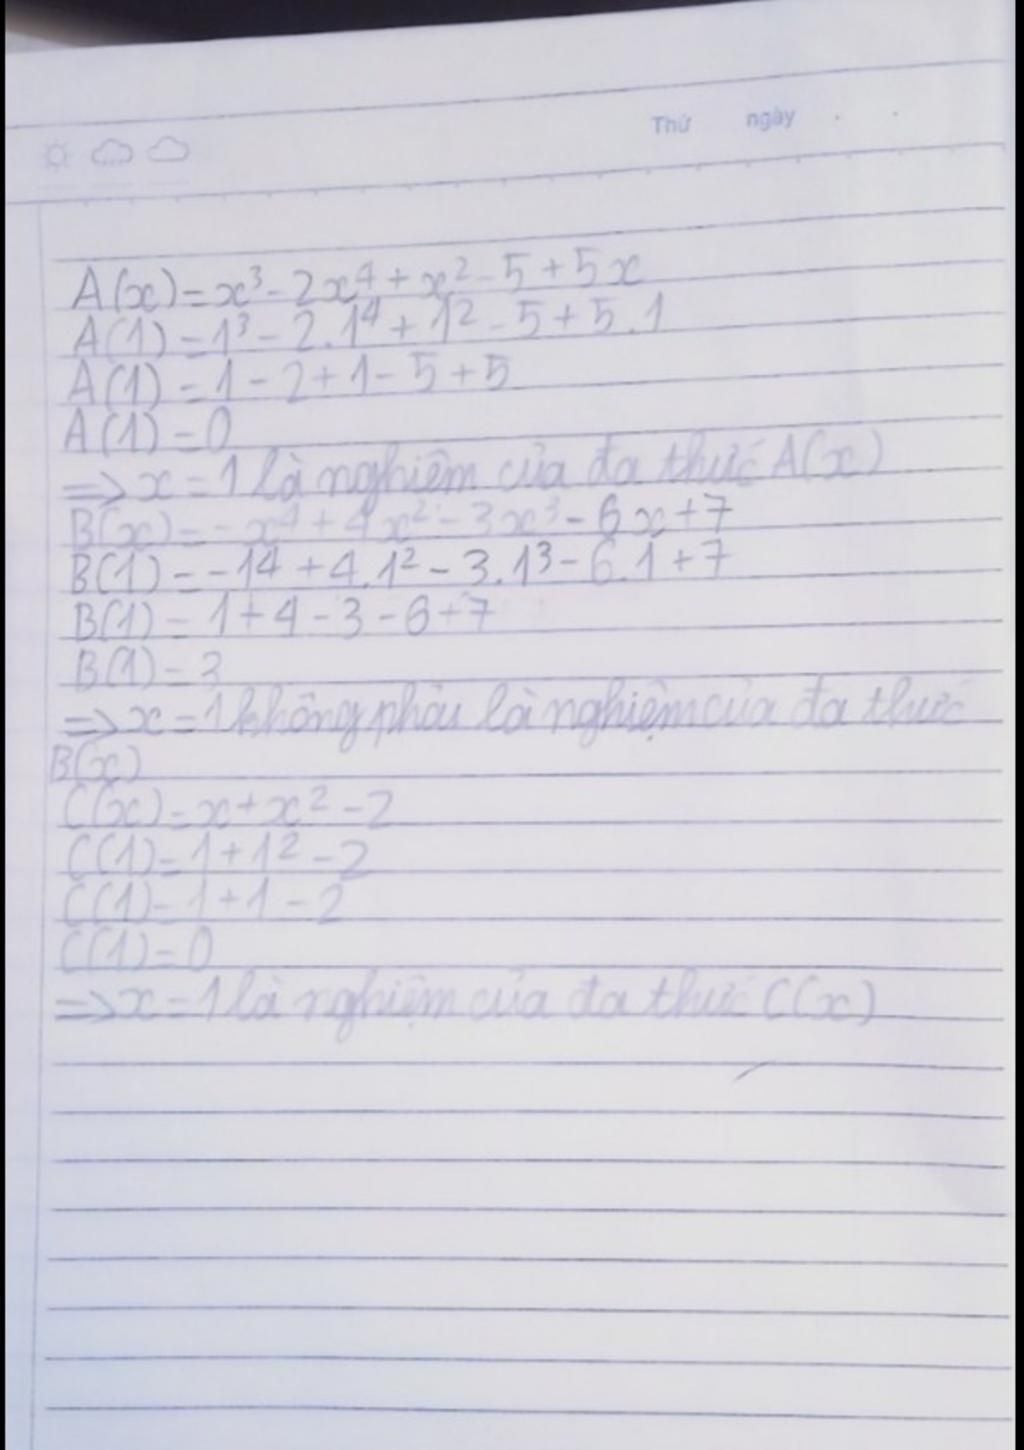 Thứ ngày
A(x)=x³-2x⁴+x²-5+5x
A(1)=1³-2.1⁴+1²-5+5.1
A(1)=1-2+1-5+5
A(1)=0
=>x=1 là nghiệm của đa thức A(x)
B(x)=-x⁴+4x²-3x³-6x+7
B(1)=-1⁴+4.1²-3.1³-6.1+7
B(1)=1+4-3-6+7
B(1)=3
=>x=1 không phải là nghiệm của đa thức
B(x)
C(x)=x+x²-2
C(1)=1+1²-2
C(1)=1+1-2
C(1)=0
=>x=1 là nghiệm của đa thức C(x)